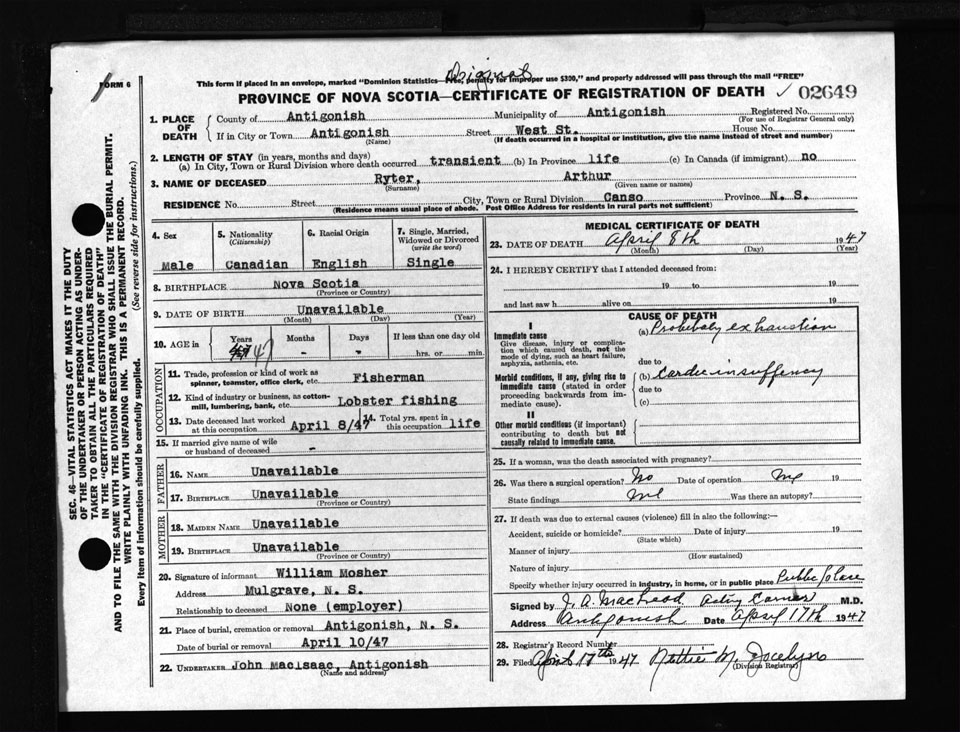 Original
FORM 6
This form if placed in an envelope, marked "Dominion Statistics—Free, penalty for improper use $300," and properly addressed will pass through the mail "FREE"
PROVINCE OF NOVA SCOTIA—CERTIFICATE OF REGISTRATION OF DEATH ✓ 02649
1. PLACE OF DEATH
County of Antigonish Municipality of Antigonish Registered No.
(For use of Registrar General only)
If in City or Town Antigonish Street West St. House No.
(Name) (If death occurred in a hospital or institution, give the name instead of street and number)
2. LENGTH OF STAY (in years, months and days)
(a) In City, Town or Rural Division where death occurred transient (b) In Province life (c) In Canada (if immigrant) no
3. NAME OF DECEASED Ryter, Arthur
(Surname) (Given name or names)
RESIDENCE No. Street City, Town or Rural Division Canso Province N. S.
(Residence means usual place of abode. Post Office Address for residents in rural parts not sufficient)
4. Sex 5. Nationality (Citizenship) 6. Racial Origin 7. Single, Married, Widowed or Divorced (write the word)
Male Canadian English Single
8. BIRTHPLACE Nova Scotia
(Province or Country)
9. DATE OF BIRTH Unavailable
(Month) (Day) (Year)
10. AGE in Years Months Days If less than one day old
47 - - hrs. or min.
OCCUPATION
11. Trade, profession or kind of work as spinner, teamster, office clerk, etc. Fisherman
12. Kind of industry or business, as cotton-mill, lumbering, bank, etc. Lobster fishing
13. Date deceased last worked at this occupation April 8/47 14. Total yrs. spent in this occupation life
15. If married give name of wife or husband of deceased -
FATHER
16. NAME Unavailable
17. BIRTHPLACE Unavailable
(Province or Country)
MOTHER
18. MAIDEN NAME Unavailable
19. BIRTHPLACE Unavailable
(Province or Country)
20. Signature of informant William Mosher
Address Mulgrave, N. S.
Relationship to deceased None (employer)
21. Place of burial, cremation or removal Antigonish, N. S.
Date of burial or removal April 10/47
22. UNDERTAKER John MacIsaac, Antigonish
(Name and address)
MEDICAL CERTIFICATE OF DEATH
23. DATE OF DEATH April 8th 1947
(Month) (Day) (Year)
24. I HEREBY CERTIFY that I attended deceased from:
19 to 19
and last saw h alive on 19
CAUSE OF DEATH
I
Immediate cause
Give disease, injury or complication which caused death, not the mode of dying, such as heart failure, asphyxia, asthenia, etc.
(a) Probebaly exhaustion
due to
Morbid conditions, if any, giving rise to immediate cause (stated in order proceeding backwards from immediate cause).
(b) Cardic insuffency
due to
(c)
II
Other morbid conditions (if important) contributing to death but not causally related to immediate cause.
25. If a woman, was the death associated with pregnancy?
26. Was there a surgical operation? No Date of operation 19
State findings Was there an autopsy?
27. If death was due to external causes (violence) fill in also the following:—
Accident, suicide or homicide? Date of injury 19
(State which)
Manner of injury
(How sustained)
Nature of injury
Specify whether injury occurred in industry, in home, or in public place Public place
Signed by J. A. MacLeod Acting Coroner M.D.
Address Antigonish Date April 17th 1947
28. Registrar's Record Number
29. Filed April 17th 1947 Nettie M. Jocelyn
(Division Registrar)
SEC. 46—VITAL STATISTICS ACT MAKES IT THE DUTY
OF THE UNDERTAKER OR PERSON ACTING AS UNDER-
TAKER TO OBTAIN ALL THE PARTICULARS REQUIRED
IN THE "CERTIFICATE OF REGISTRATION OF DEATH"
AND TO FILE THE SAME WITH THE DIVISION REGISTRAR WHO SHALL ISSUE THE BURIAL PERMIT.
WRITE PLAINLY WITH UNFADING INK. THIS IS A PERMANENT RECORD.
Every item of information should be carefully supplied. (See reverse side for instructions.)